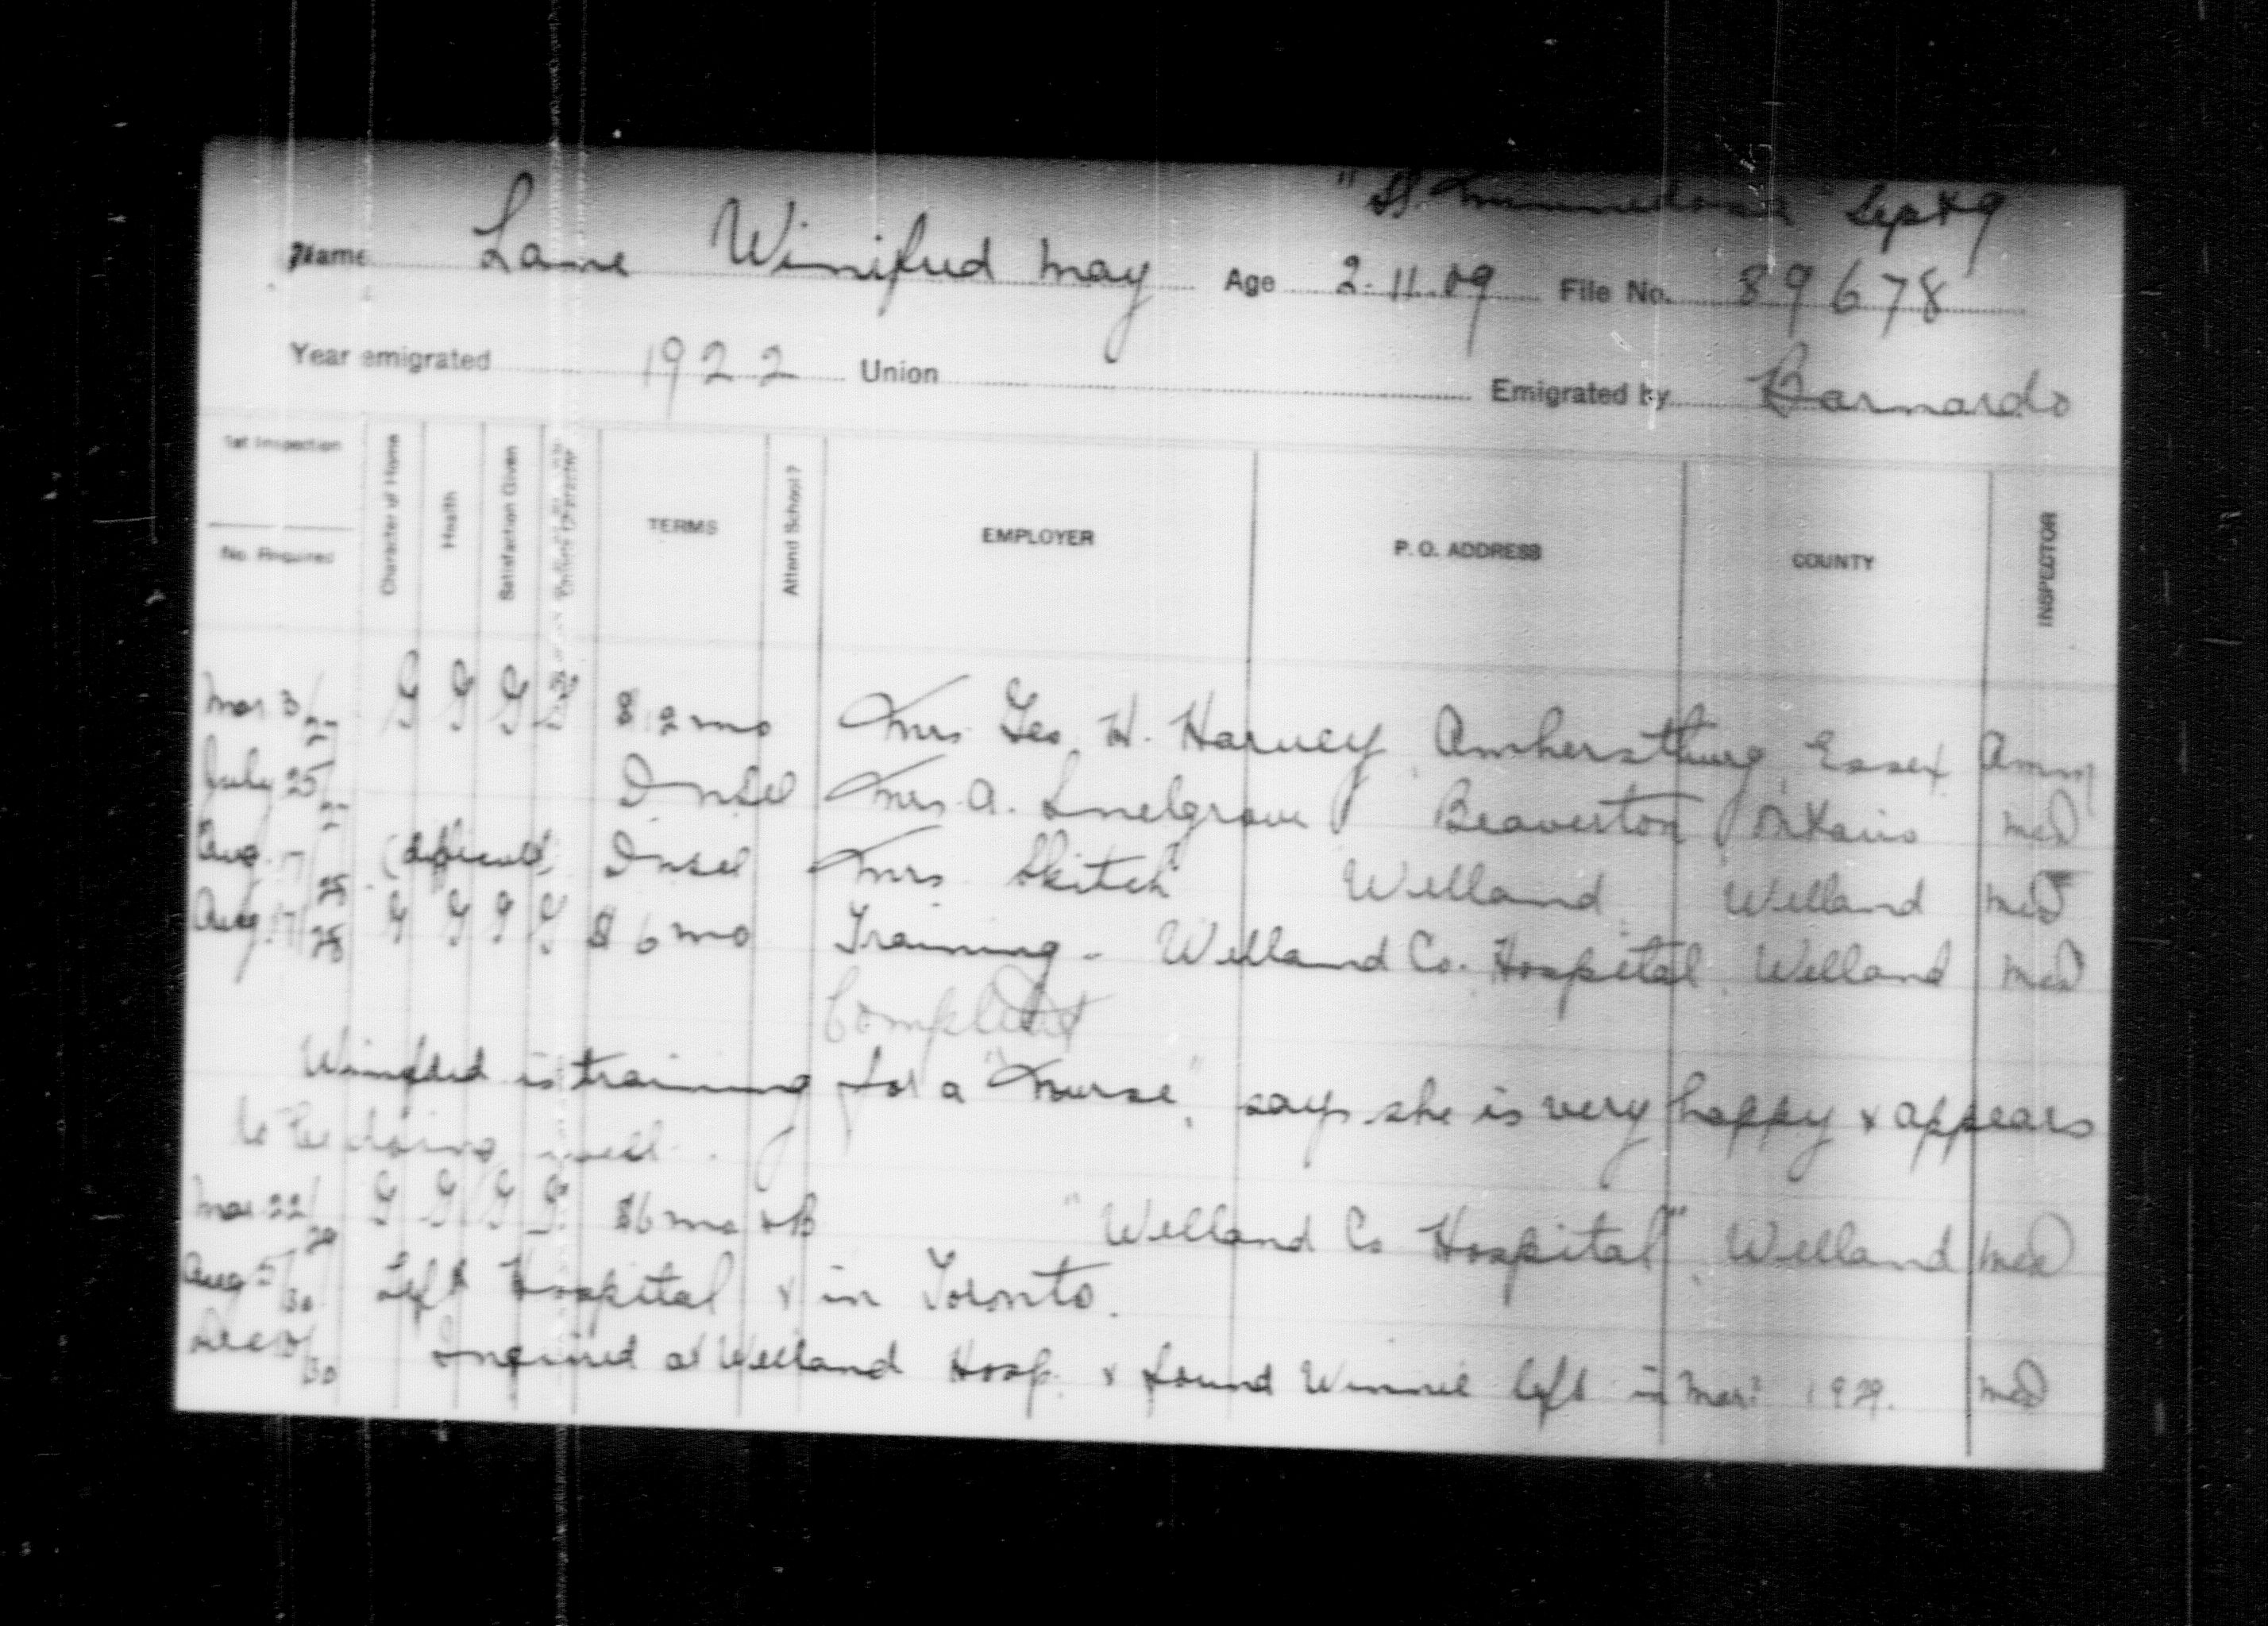 "SS. Minnedosa" Sept 9
Name Lane Winifred May Age 2.11.09 File No. 39678
Year emigrated 1922 Union Emigrated by Barnardo
1st Inspection
No. Required
Character of Home
Health
Satisfaction Given
TERMS
Attend School?
EMPLOYER
P. O. ADDRESS
COUNTY
INSPECTOR
Mar 3/27 G G G G $12 mo Mrs. Geo. H. Harvey Amherstburg Essex
July 25/27 Insel Mrs. A. Snelgrove Beaverton Ontario MED
Aug. 17/28 (difficult) Insel Mrs. Skitch Welland Welland MED
Aug. 17/28 G G G G $6 mo Training - Welland Co. Hospital Welland MED
Complete
Winifred is training for a "Nurse", says she is very happy & appears
to be doing well.
Mar 22/29 G G G G $6 mo & B "Welland Co Hospital" Welland MED
Aug 5/30 Left Hospital & in Toronto.
Dec /30 Inquired at Welland Hosp. & found Winnie left in Mar. 1929. MED